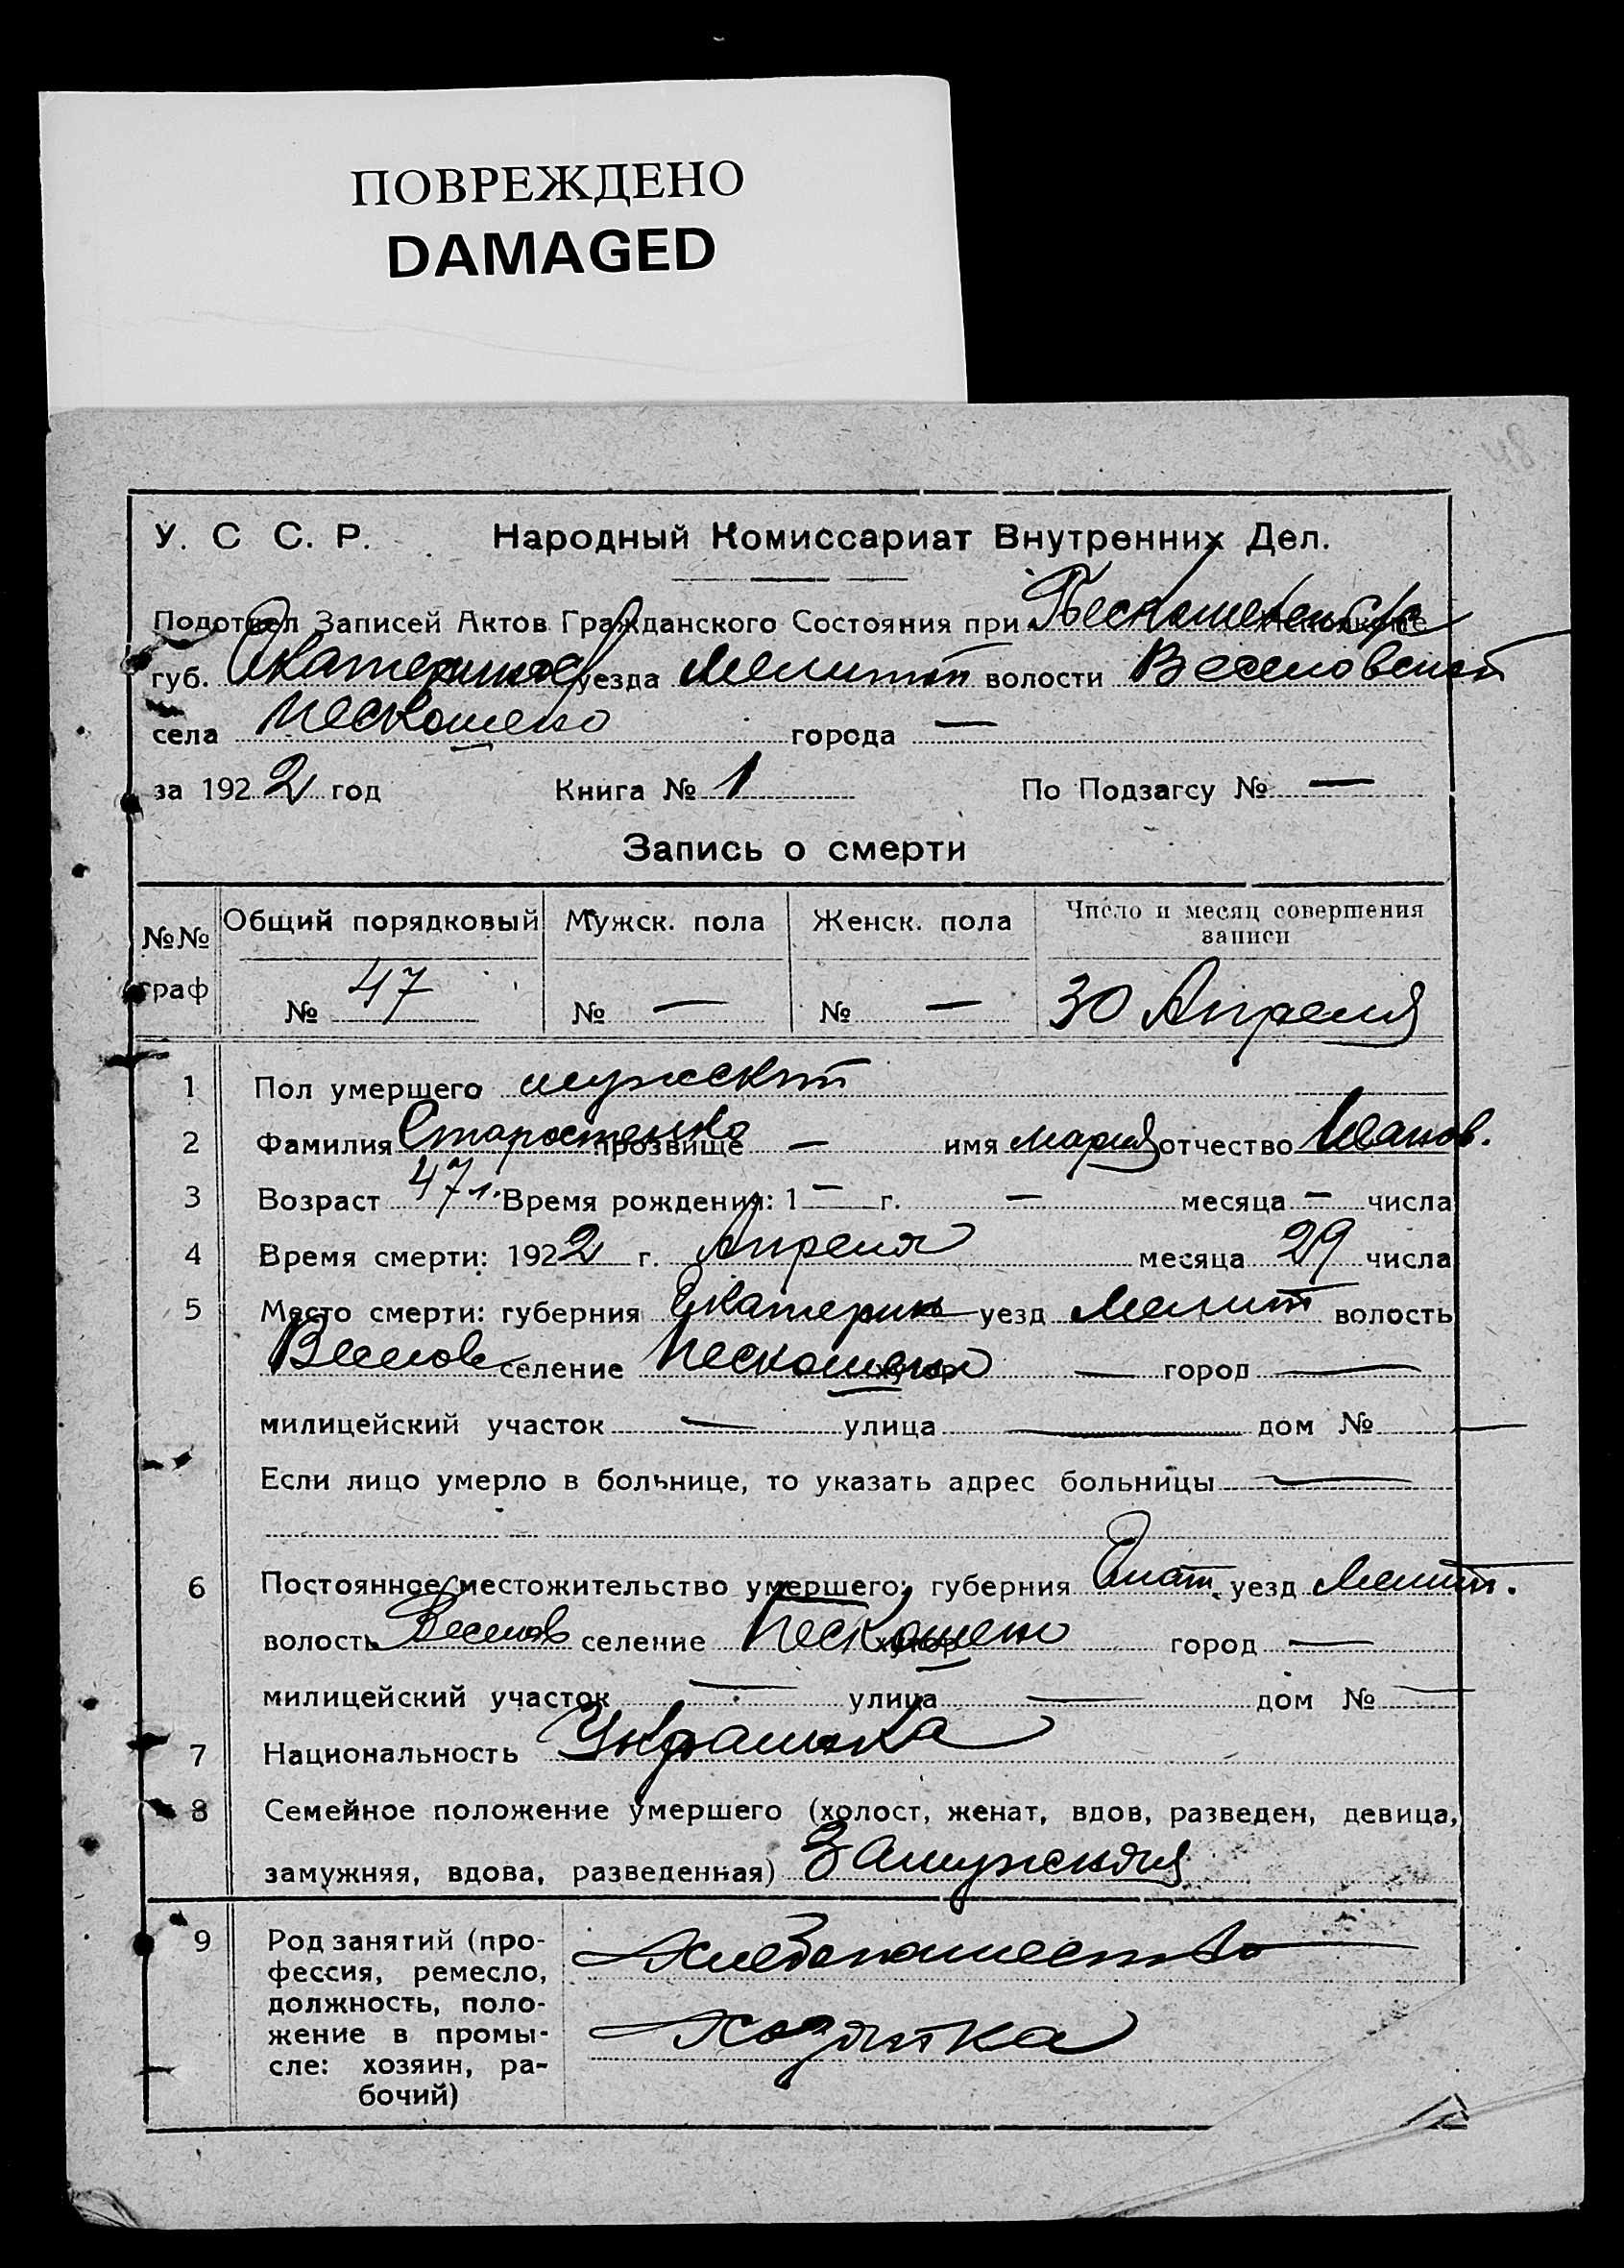 ПОВРЕЖДЕНО
DAMAGED
У. С С. Р. Народный Комиссариат Внутренних Дел.
Подотдел Записей Актов Гражданского Состояния при
губ. Екатеринос уезда Мелитоп волости Веселовской
села Пескошено города —
за 1922 год Книга № 1 По Подзагсу № —
Запись о смерти
№№ граф Общий порядковый Мужск. пола Женск. пола Число и месяц совершения записи
№ 47 № — № — 30 Апреля
1 Пол умершего мужской
2 Фамилия Старостенко прозвище — имя Мария отчество Иванов.
3 Возраст 47 л. Время рождения: 1 — г. — месяца — числа
4 Время смерти: 1922 г. Апреля месяца 29 числа
5 Место смерти: губерния Екатерин уезд Мелит волость
Веселов селение Пескошено хутор — город —
милицейский участок — улица — дом № —
Если лицо умерло в больнице, то указать адрес больницы —
6 Постоянное местожительство умершего: губерния Екат. уезд Мелит.
волость Веселов селение Пескошено хутор город —
милицейский участок — улица — дом № —
7 Национальность Украинка
8 Семейное положение умершего (холост, женат, вдов, разведен, девица,
замужняя, вдова, разведенная) Замужняя
9 Род занятий (про-
фессия, ремесло,
должность, поло-
жение в промы-
сле: хозяин, ра-
бочий)
Хлебопашество
Хозяйка